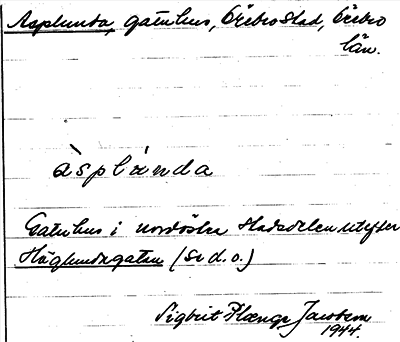 Asplunda, gatuhus, Örebro stad, Örebro
län.
àsplánda
Gatuhus i nordöstra stadsdelen utefter
Höglundagatan (Se d. o.)
Sigbrit Plænge Jacobson
1944.